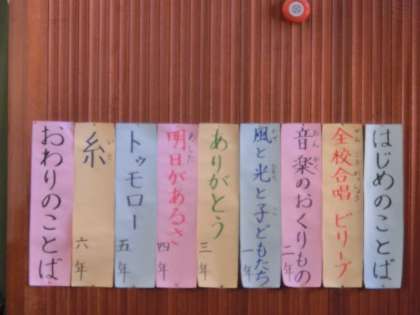 はじめのことば
全校合唱 ビリーブ
音楽のおくりもの 二年
風と光と子どもたち 一年
ありがとう 三年
明日があるさ 四年
トゥモロー 五年
糸 六年
おわりのことば